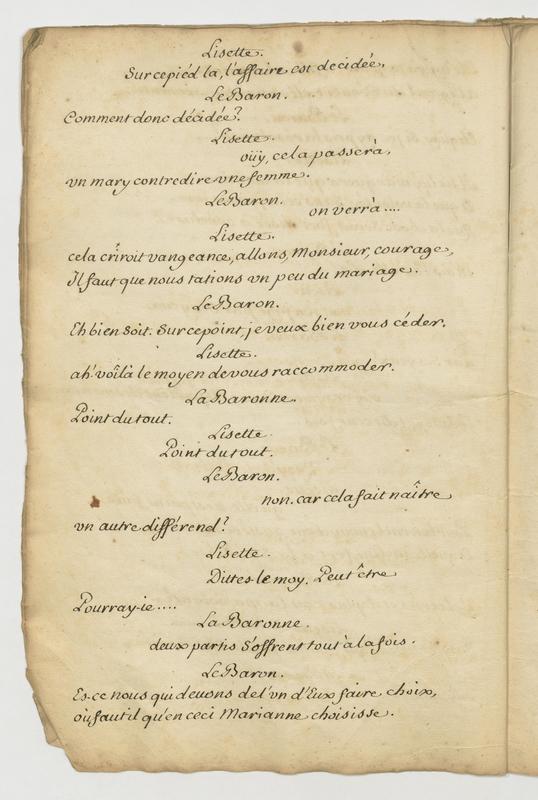 Lisette.
Sur ce piéd la, l'affaire est decidée,
Le Baron.
Comment donc décidée?
Lisette.
oüy, cela passera,
vn mary contredire vne femme.
Le Baron.
on verra....
Lisette.
cela criroit vangeance, allons, Monsieur, courage,
Il faut que nous tations vn peu du mariage.
Le Baron.
Eh bien soit. Sur ce point, je veux bien vous céder.
Lisette.
ah! voila le moyen de vous raccommoder.
La Baronne.
Point du tout.
Lisette.
Point du tout.
Le Baron.
non. car cela fait naître
vn autre différend?
Lisette.
Dittes-le moy. Peut être
Pourray-ie....
La Baronne.
deux partis s'offrent tout à la fois.
Le Baron.
Es-ce nous qui deuons de l'vn d'Eux faire choix,
où faut il qu'en ceci Marianne choisisse.